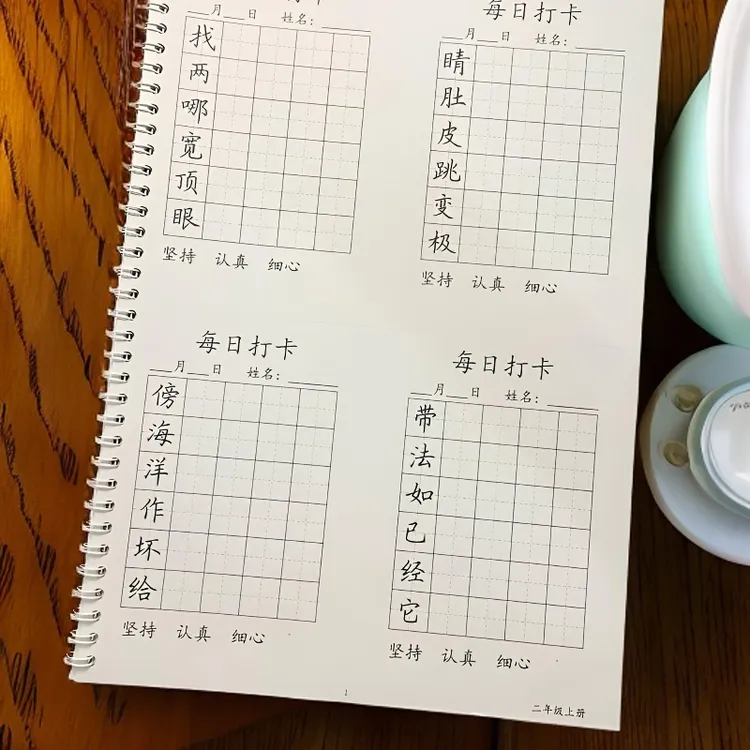 月 日 姓名:
找
两
哪
宽
顶
眼
坚持 认真 细心
每日打卡
月 日 姓名:
睛
肚
皮
跳
变
极
坚持 认真 细心
每日打卡
月 日 姓名:
傍
海
洋
作
坏
给
坚持 认真 细心
每日打卡
月 日 姓名:
带
法
如
已
经
它
坚持 认真 细心
1
二年级上册